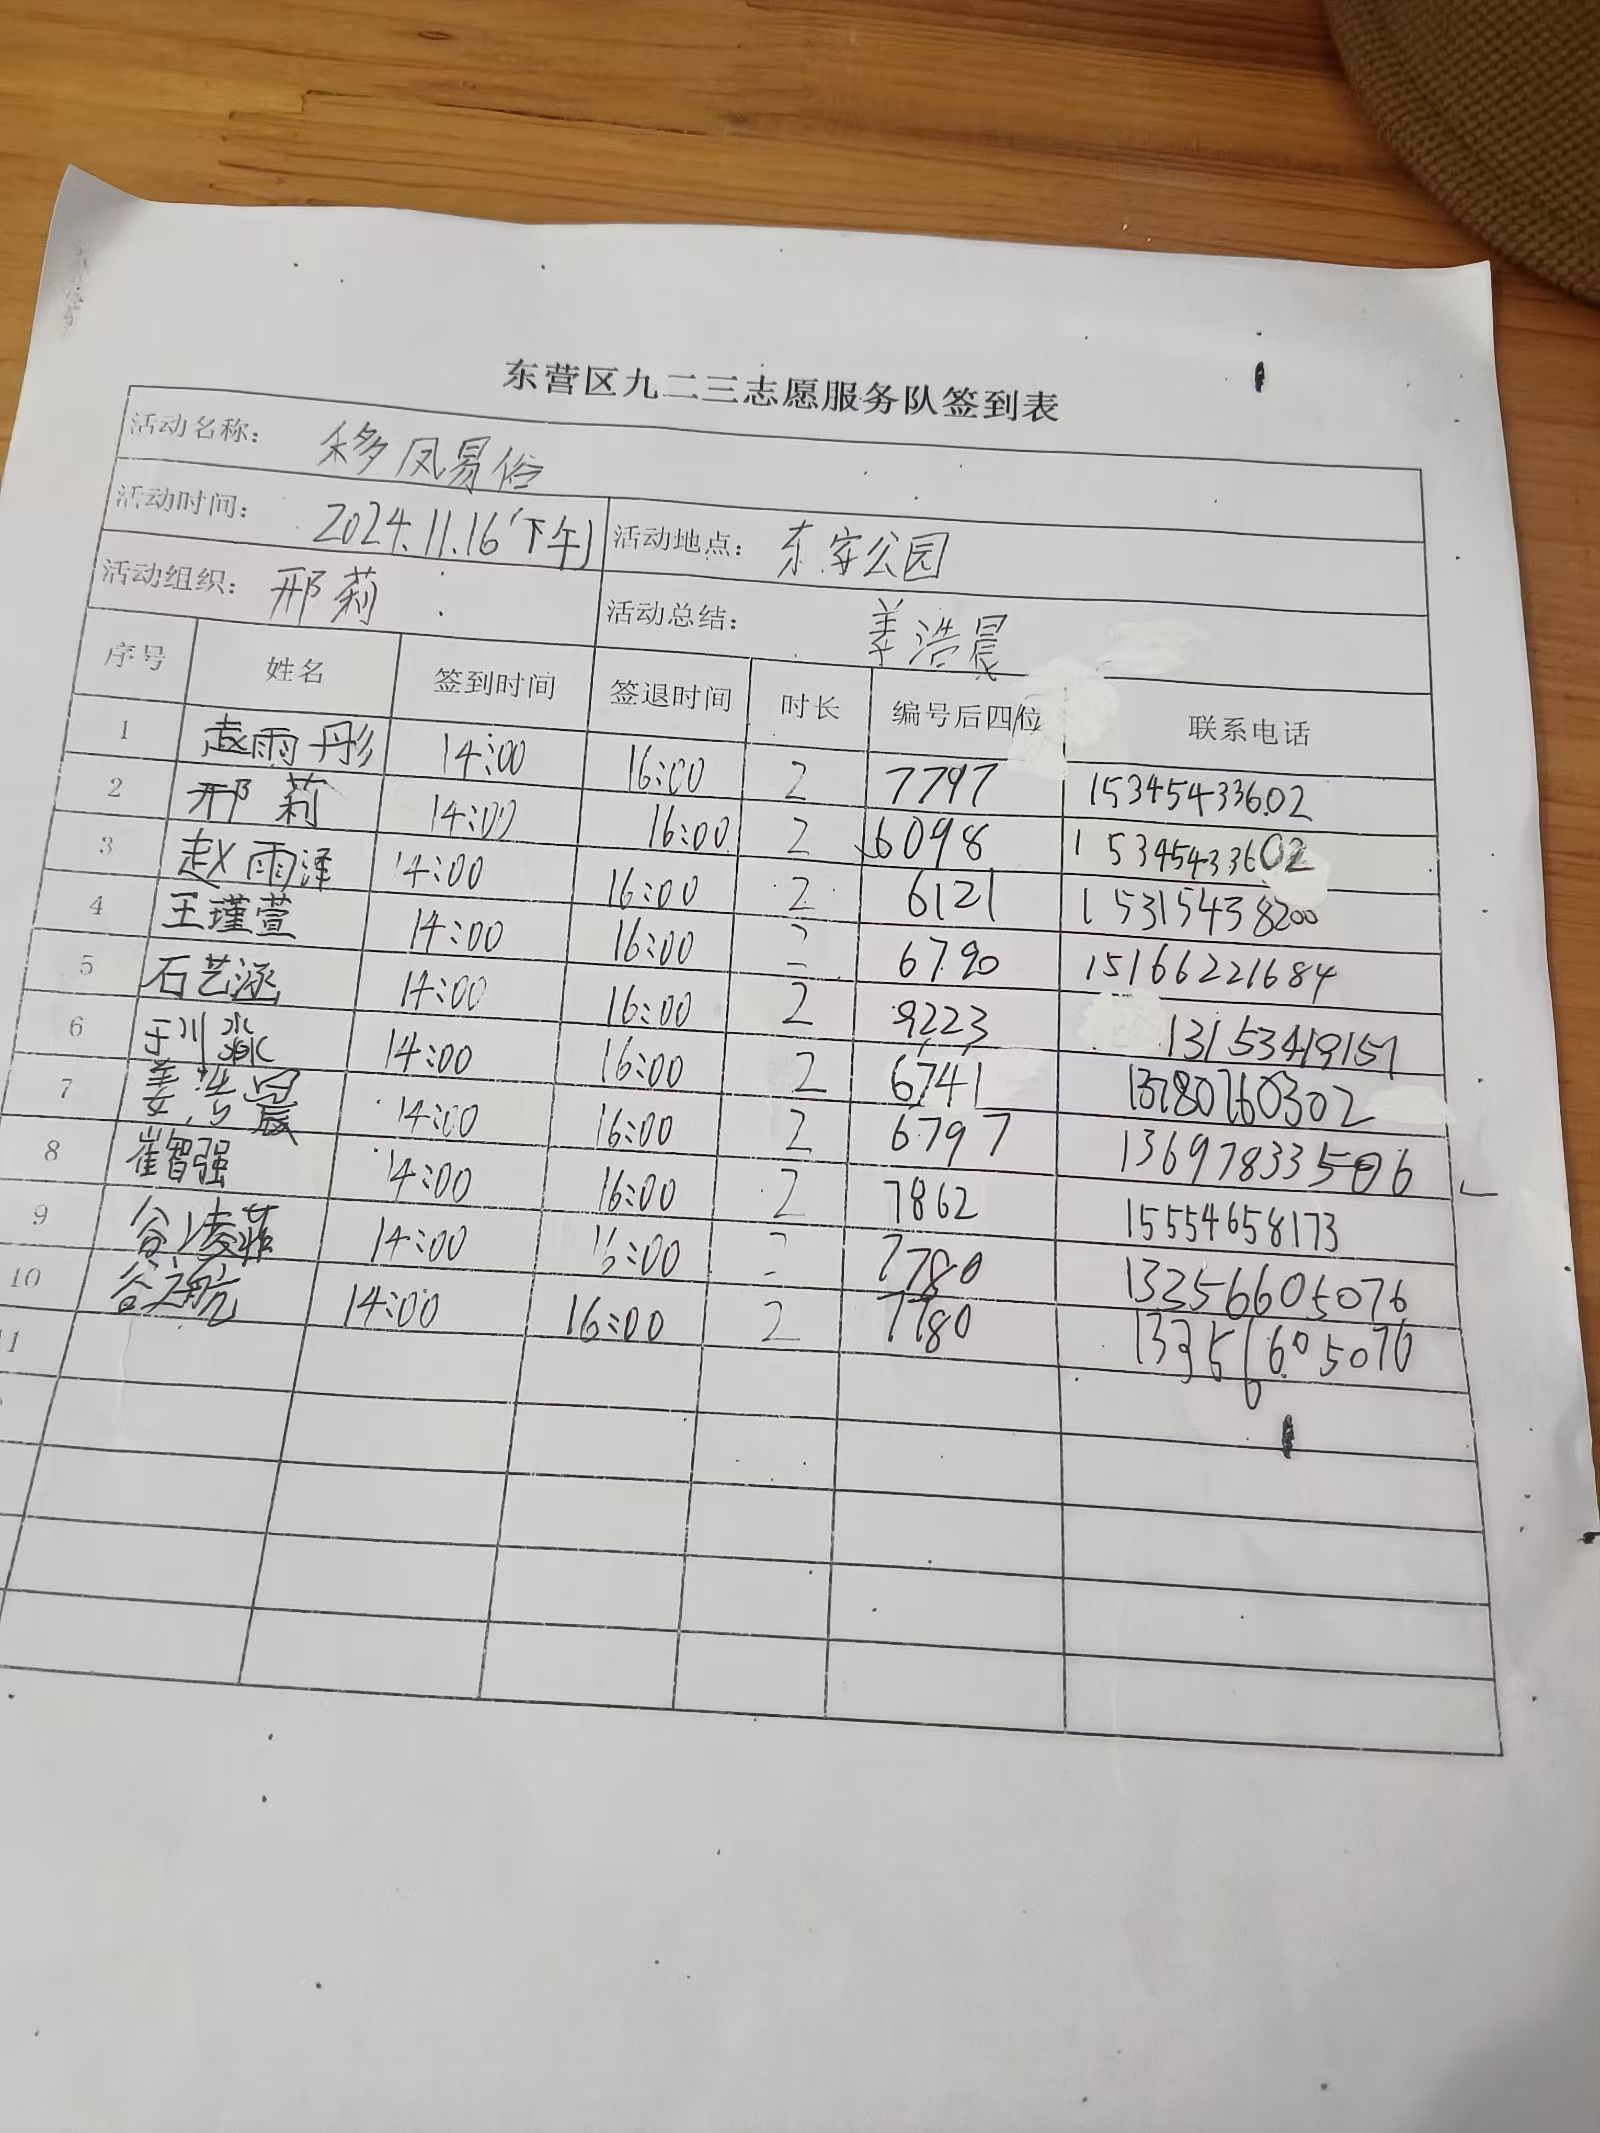 东营区九二三志愿服务队签到表
活动名称: 移风易俗
活动时间: 2024.11.16(下午) 活动地点: 东安公园
活动组织: 邢莉 活动总结: 姜浩晨
序号 姓名 签到时间 签退时间 时长 编号后四位 联系电话
1 赵雨彤 14:00 16:00 2 7797 15345433602
2 邢莉 14:00 16:00 2 6098 15345433602
3 赵雨泽 14:00 16:00 2 6121 15315438200
4 王瑾萱 14:00 16:00 2 6790 15166221684
5 石艺涵 14:00 16:00 2 9223 13153419157
6 于川淼 14:00 16:00 2 6741 13780760302
7 姜浩晨 14:00 16:00 2 6797 13697833506
8 崔智强 14:00 16:00 2 7862 15554658173
9 谷凌菲 14:00 16:00 2 7780 13356605076
10 谷航 14:00 16:00 2 7780 13356605076
11